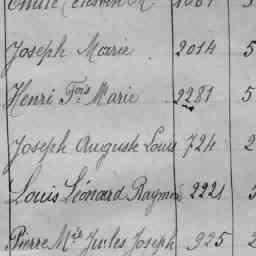 Emile Célestin M. 1081 5
Joseph Marie 2014 5
Henri Fois Marie 2281 5
Joseph Auguste Louis 724 2
Louis Léonard Raymon 2221
Pierre Mie Jules Joseph 925 2